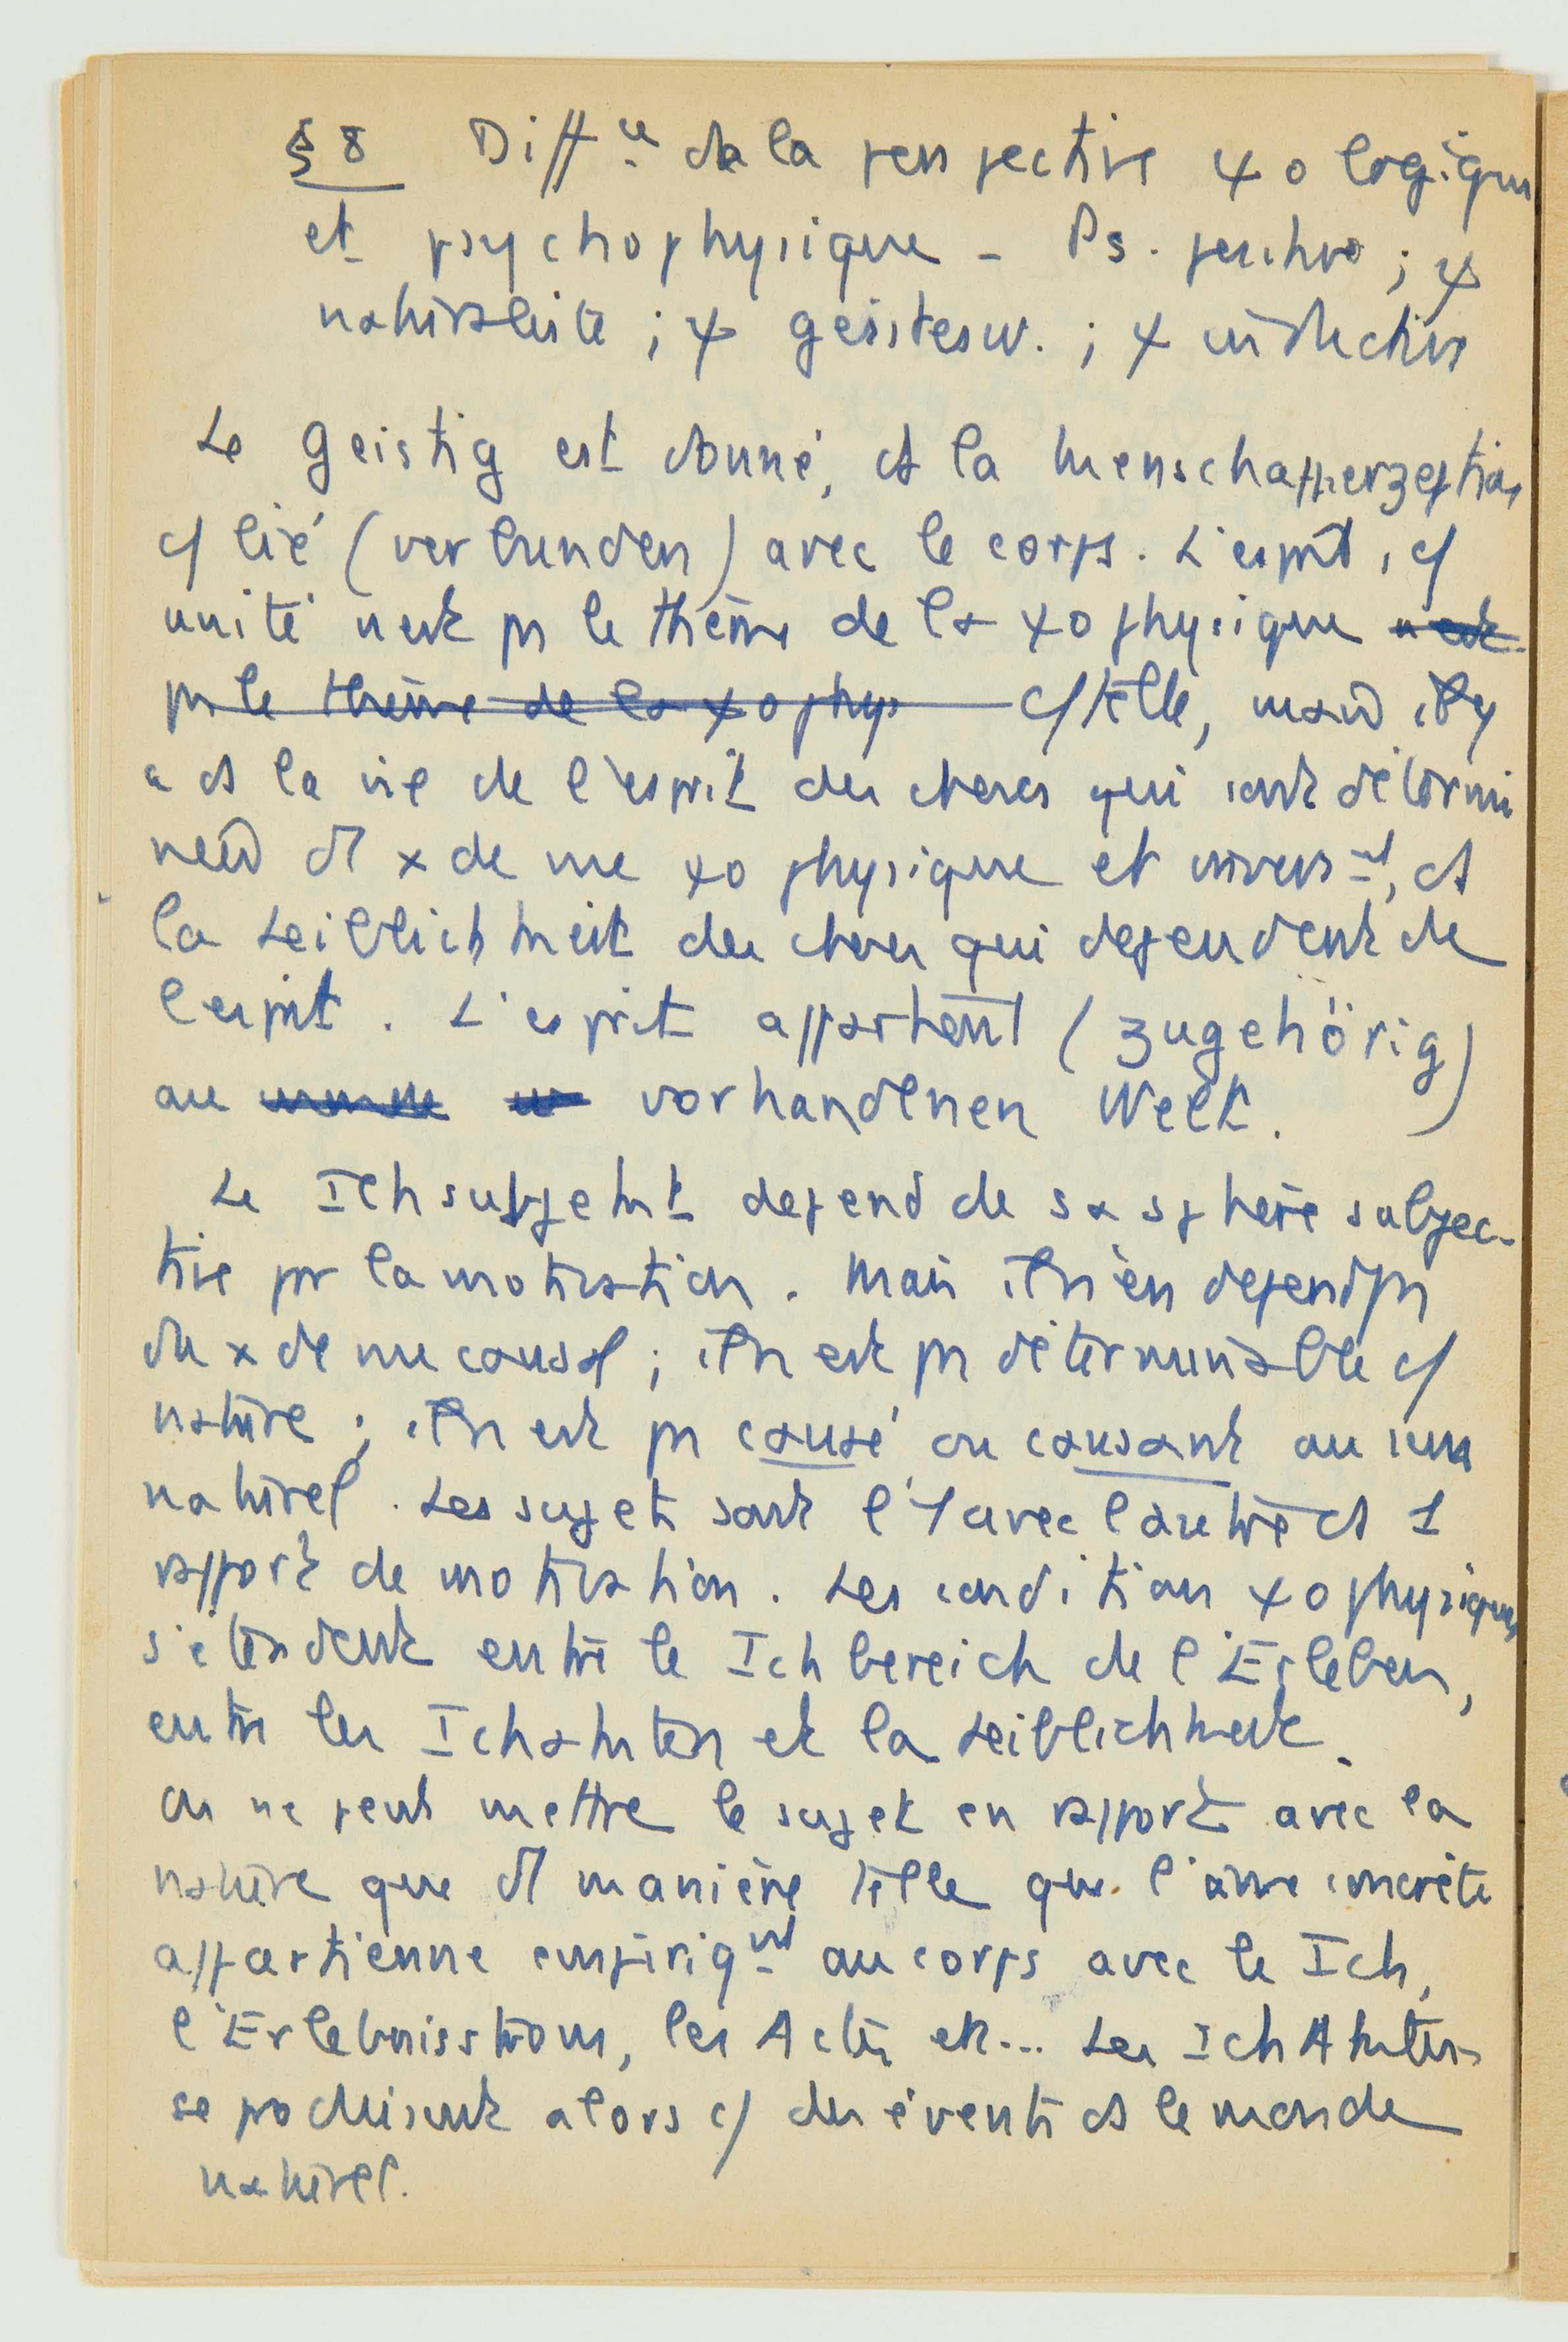 § 8 Diff ce de la perspective ψologique
et psychophysique - Ps. ; ψ
naturaliste ; ψ geistesw. ; ψ inductive
Le geistig est donné, ds la Menschapperzeption
c/ lié (verbunden) avec le corps. L'esprit, c/
unité n'est ps le thème de la ψophysique n'est
ps le thème de la ψophys c/ telle, mais il y
a ds la vie de l'esprit des choses qui sont détermi
nées d'1 x de vue ψophysique et invers nt, ds
la Leiblichkeit des choses qui dépendent de
l'esprit. L'esprit appartient (zugehörig)
au monde vorhandenen Welt.
Le Ichsubjekt dépend de sa sphère subjec-
tive pr la motivation. Mais il n'en dépend ps
du x de vue causal ; il n'est ps déterminable c/
nature ; il n'est ps causé ou causant au sens
naturel. Les sujets sont l'1 avec l'autre ds 1
rapport de motivation. Les conditions ψophysiques
s'étendent entre le Ichbereich de l'Erleben,
entre les Ichakten et la Leiblichkeit.
On ne peut mettre le sujet en rapport avec la
nature que d'1 manière telle que l'âme concrète
appartienne empiriq nt au corps avec le Ich,
l'Erlebnisstrom, les Actes etc... Les Ich Akten
se produisent alors c/ des évents ds le monde
naturel.